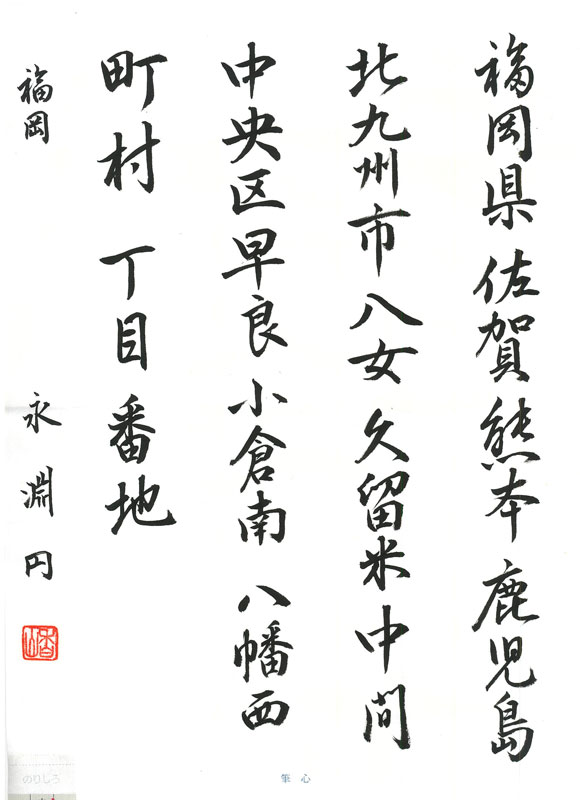 福岡県 佐賀 熊本 鹿児島
北九州市 八女 久留米 中間
中央区 早良 小倉南 八幡西
町村 丁目 番地
福岡 永淵円
のりしろ
筆心